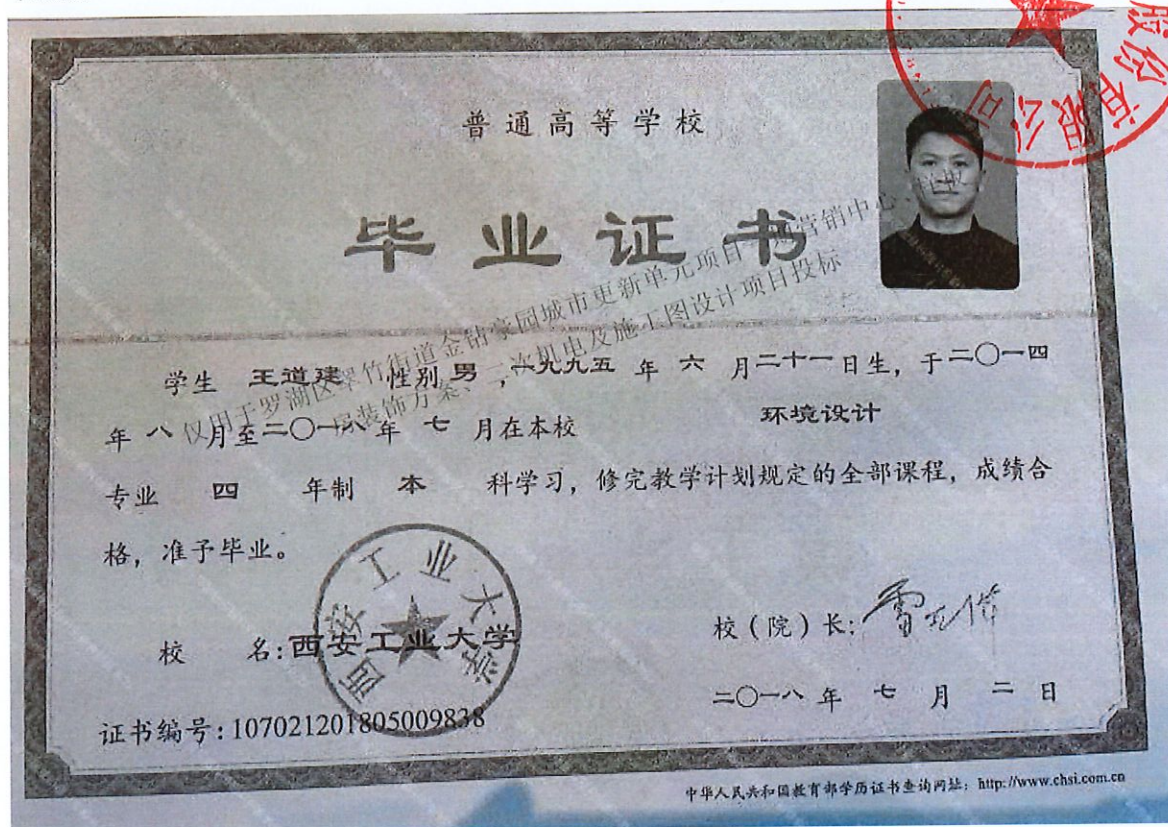 股份有限公司
普通高等学校
毕业证书
仅用于罗湖区翠竹街道金钻豪园城市更新单元项目 营销中心、
房装饰方案、二次机电及施工图设计项目投标
学生 王道建 性别 男 ,一九九五 年 六 月二十一日生, 于二〇一四
年 八 月至二〇一八年 七 月在本校 环境设计
专业 四 年制 本 科学习, 修完教学计划规定的全部课程, 成绩合
格, 准予毕业。
西安工业大学
校 名:西安工业大学
校(院)长:
二〇一八 年 七 月 二 日
证书编号:107021201805009838
中华人民共和国教育部学历证书查询网址: http://www.chsi.com.cn